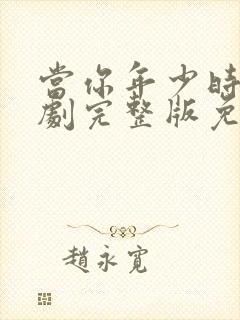 當你年少時
劇完整版免
趙永寬